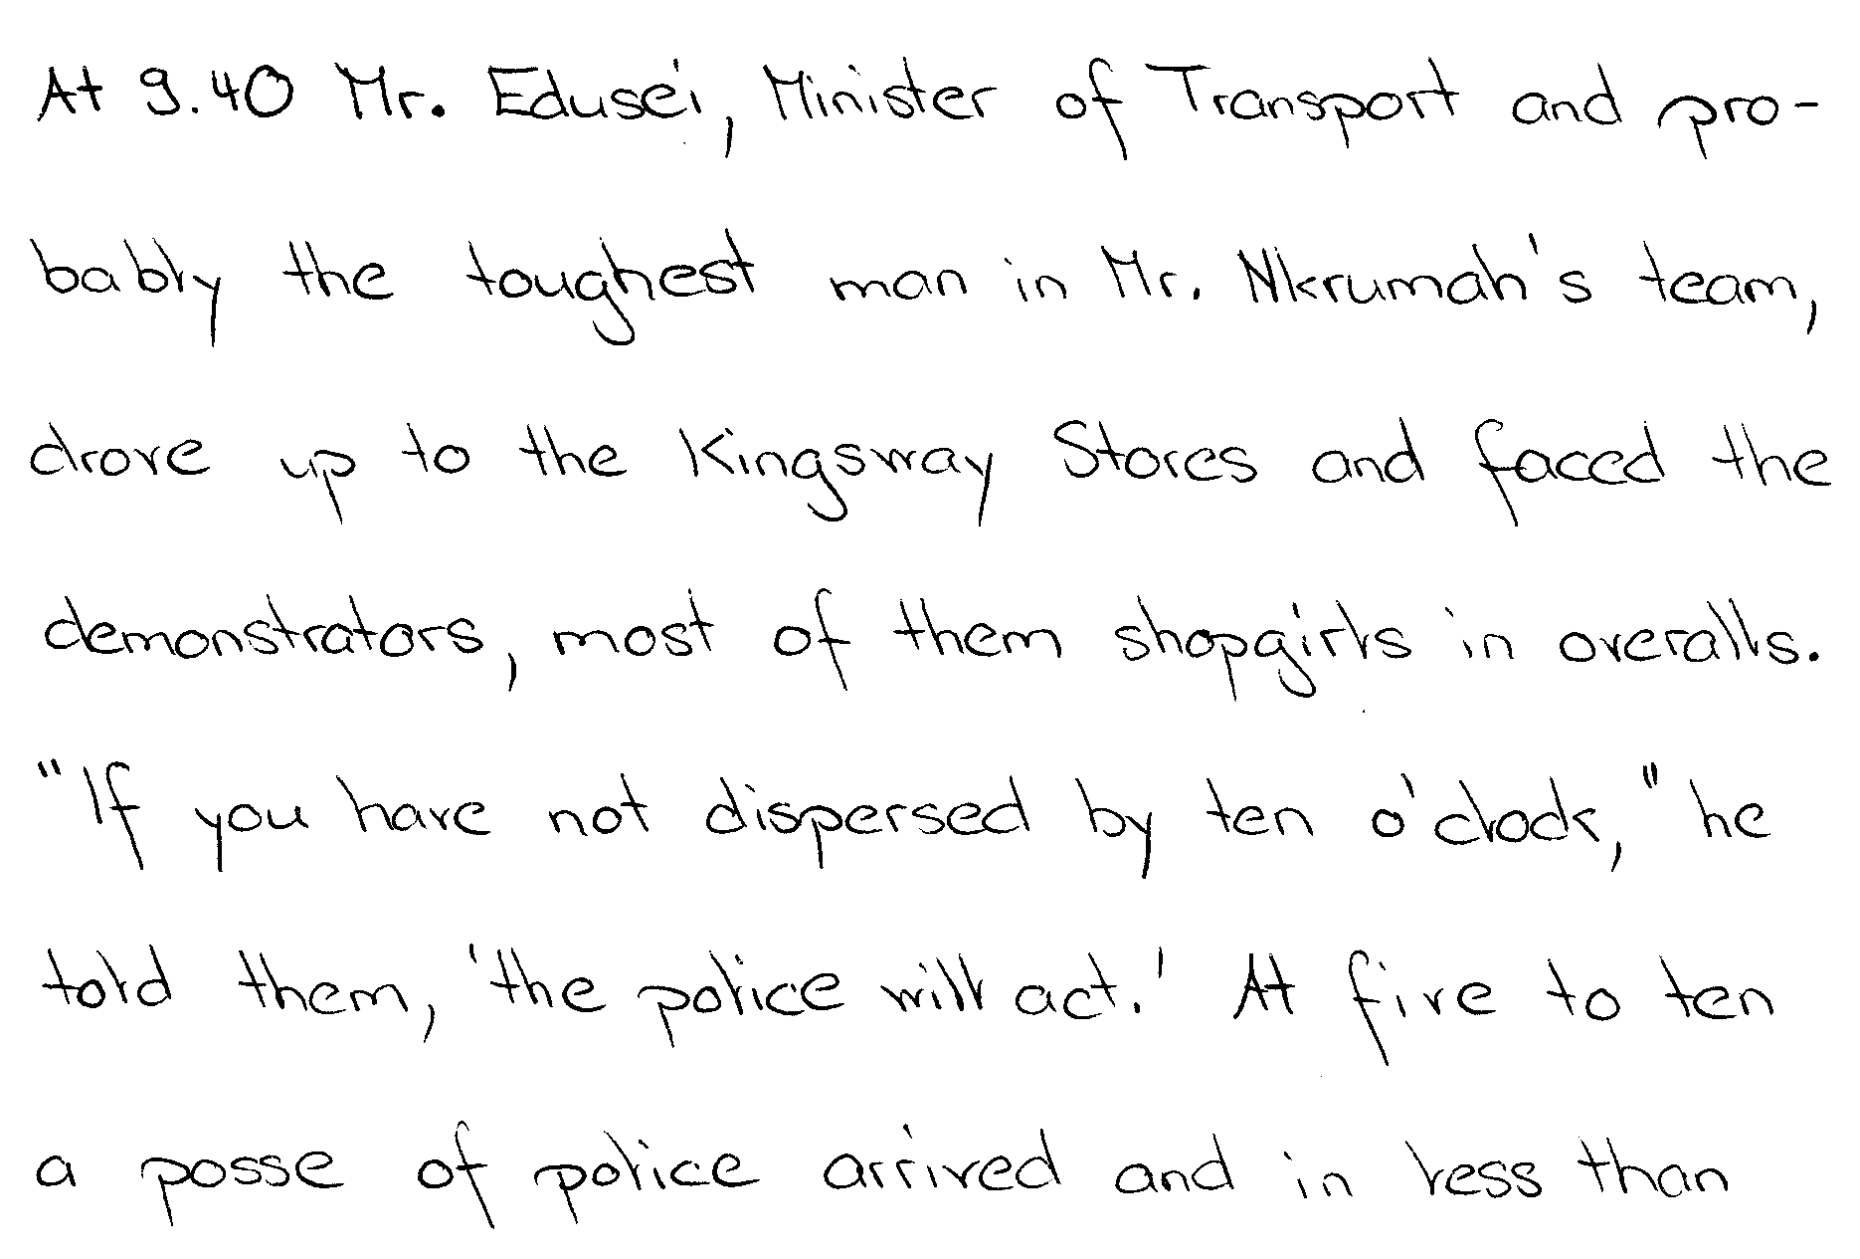 At 9.40 Mr. Edusei, Minister of Transport and pro-
bably the toughest man in Mr. Nkrumah's team,
drove up to the Kingsway Stores and faced the
demonstrators, most of them shopgirls in overalls.
"If you have not dispersed by ten o'clock," he
told them, 'the police will act.' At five to ten
a posse of police arrived and in less than